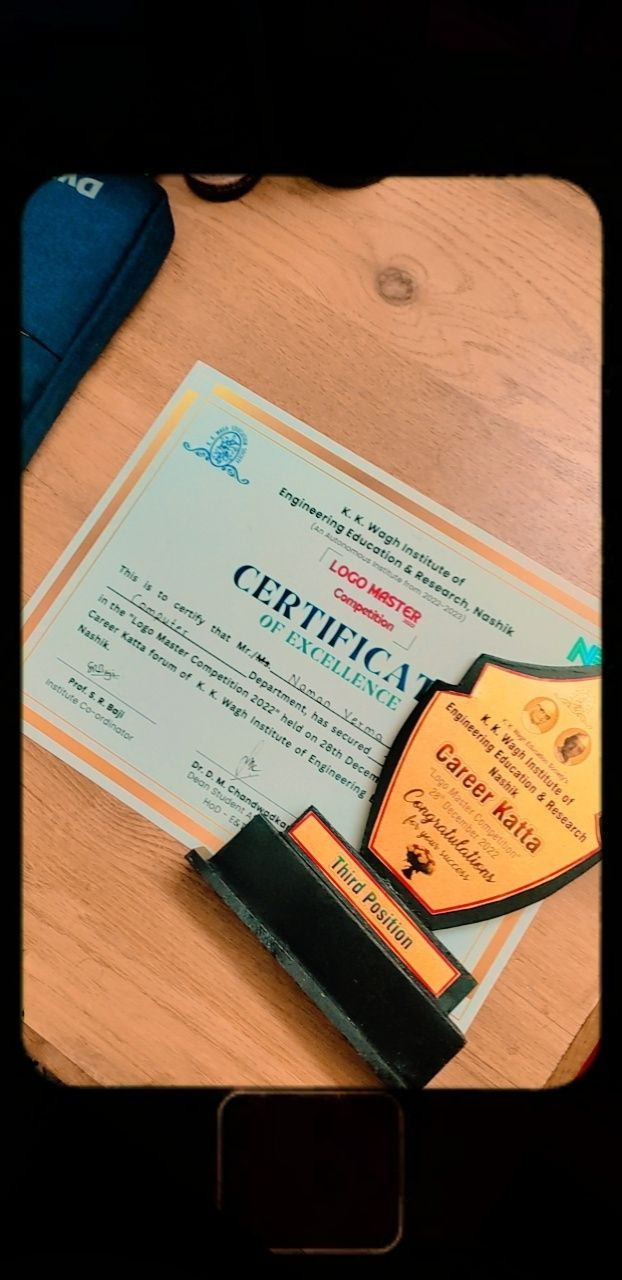 K. K. WAGH EDUCATION SOCIETY
K. K. Wagh Institute of
Engineering Education & Research, Nashik
(An Autonomous Institute from 2022-2023)
LOGO MASTER
Competition
CERTIFICAT
OF EXCELLENCE
This is to certify that Mr./Ms. Naman Verma
Computer Department, has secured
in the "Logo Master Competition 2022" held on 28th Decem
Career Katta forum of K. K. Wagh Institute of Engineering
Nashik.
Prof. S. R. Baji
Institute Co-ordinator
Dr. D. M. Chandwadka
Dean Student A
HoD - E&
K. K. Wagh Education Society's
K. K. Wagh Institute of
Engineering Education & Research
Nashik
Career Katta
"Logo Master Competition"
28th December, 2022
Congratulations
for your success
Third Position